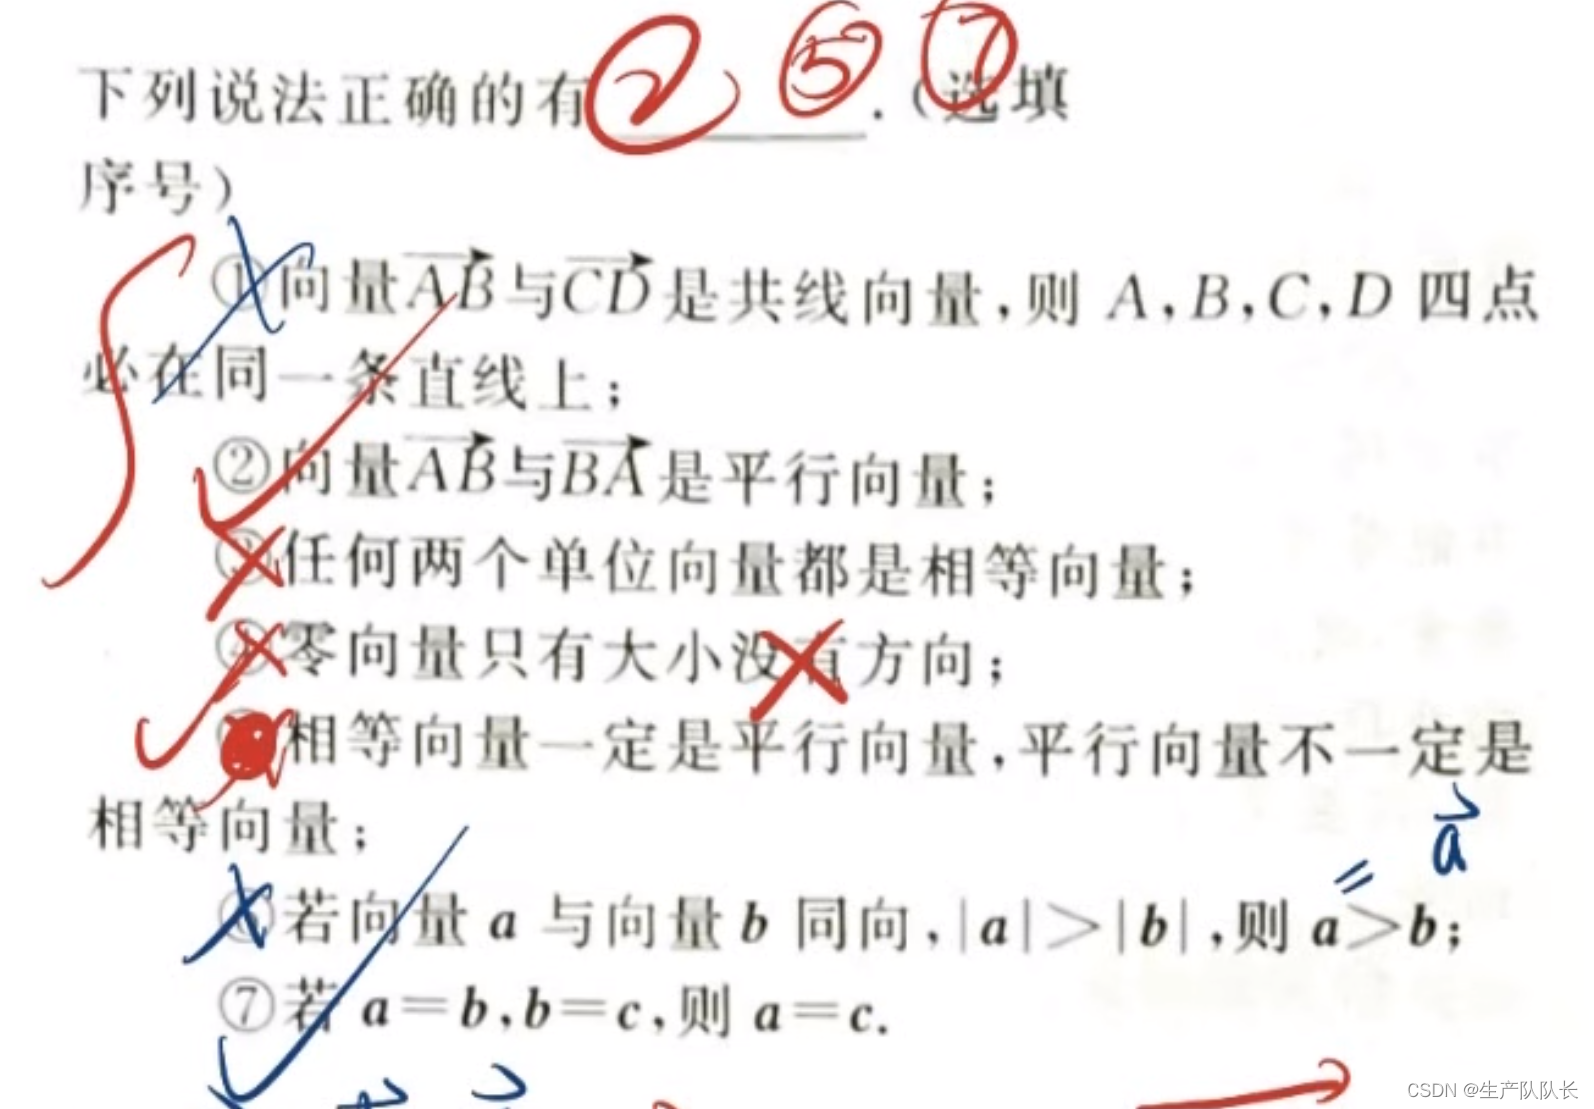 下列说法正确的有② ⑤ ⑦.(选填
序号)
①向量AB与CD是共线向量,则 A,B,C,D 四点
必在同一条直线上;
②向量AB与BA是平行向量;
③任何两个单位向量都是相等向量;
④零向量只有大小没有方向;
相等向量一定是平行向量,平行向量不一定是
相等向量;
a
=
⑥若向量 a 与向量 b 同向,|a|>|b|,则 a>b;
⑦若 a=b,b=c,则 a=c.
CSDN @生产队队长